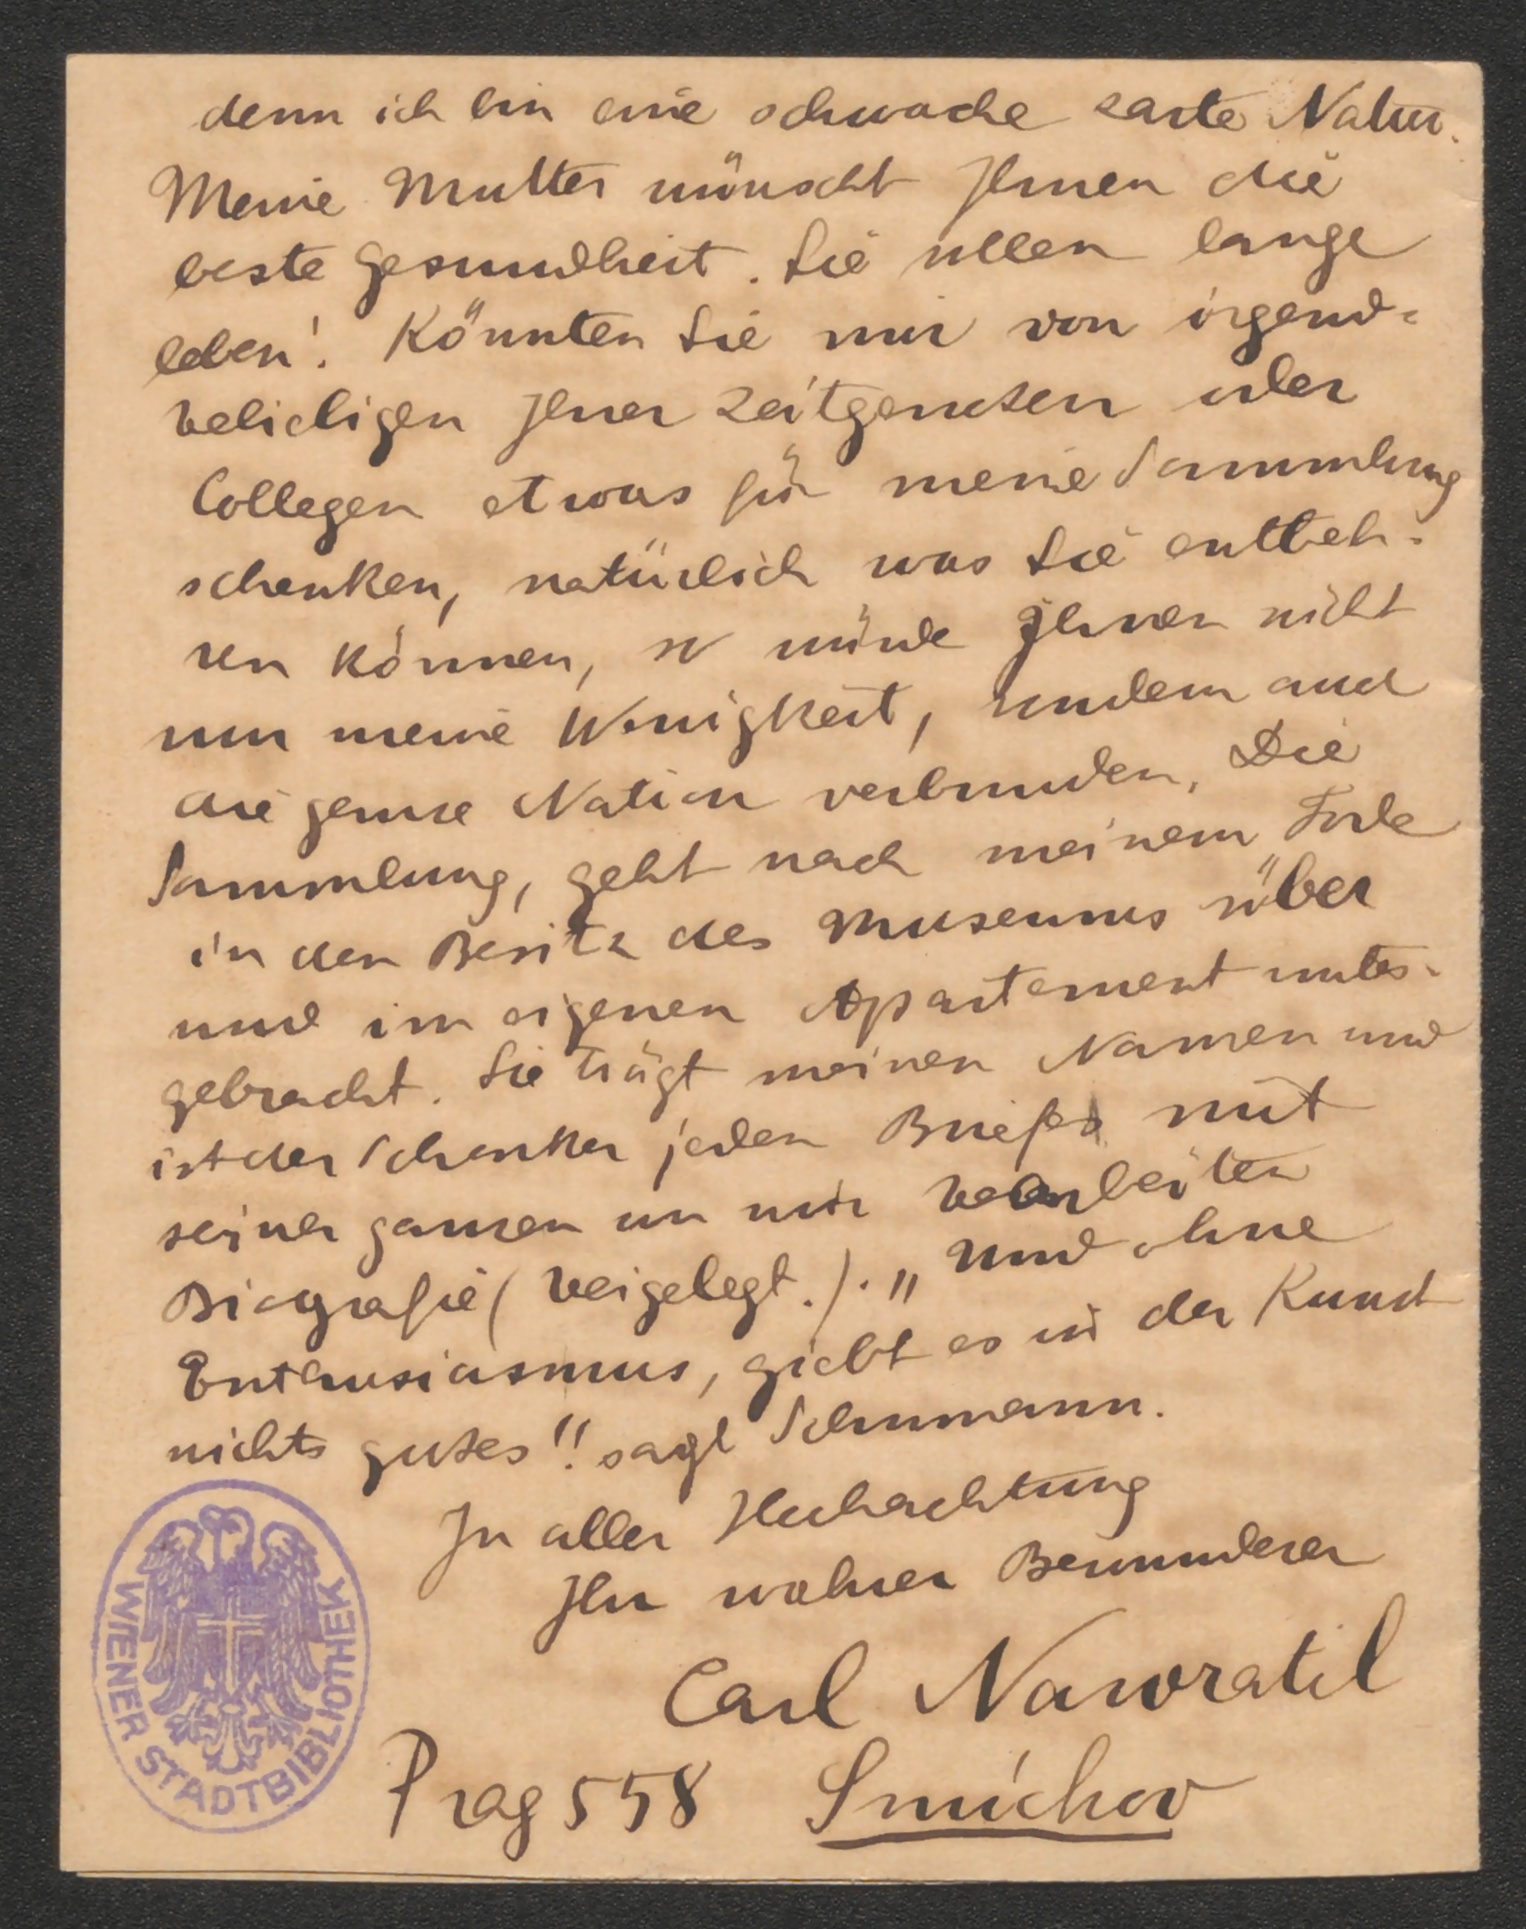 denn ich bin eine schwache zarte Natur.
Meine Mutter wünscht Ihnen die
beste Gesundheit. Sie sollen lange
leben! Könnten Sie mir von irgend-
beliebigen Ihrer Zeitgenossen oder
Collegen etwas für meine Sammlung
schenken, natürlich was Sie entbeh-
ren können, so würde Ihnen nicht
nur meine Wenigkeit, sondern auch
die ganze Nation verbunden. Die
Sammlung, geht nach meinem Tode
in den Besitz des Museums über
und im eigenen Apartement unter-
gebracht. Sie trägt meinen Namen und
ist der Schenker jeden Briefes mit
seiner ganzen von mir bearbeiten
Biografie (beigelegt.). „Und ohne
Enthusiasmus, giebt es in der Kunst
nichts gutes"! sagt Schumann.
In aller Hochachtung
Ihr wahrer Bewunderer
Carl Nawratil
Prag 558 Smíchov
WIENER STADTBIBLIOTHEK